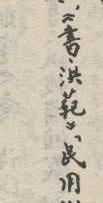 《書·洪範》「民用